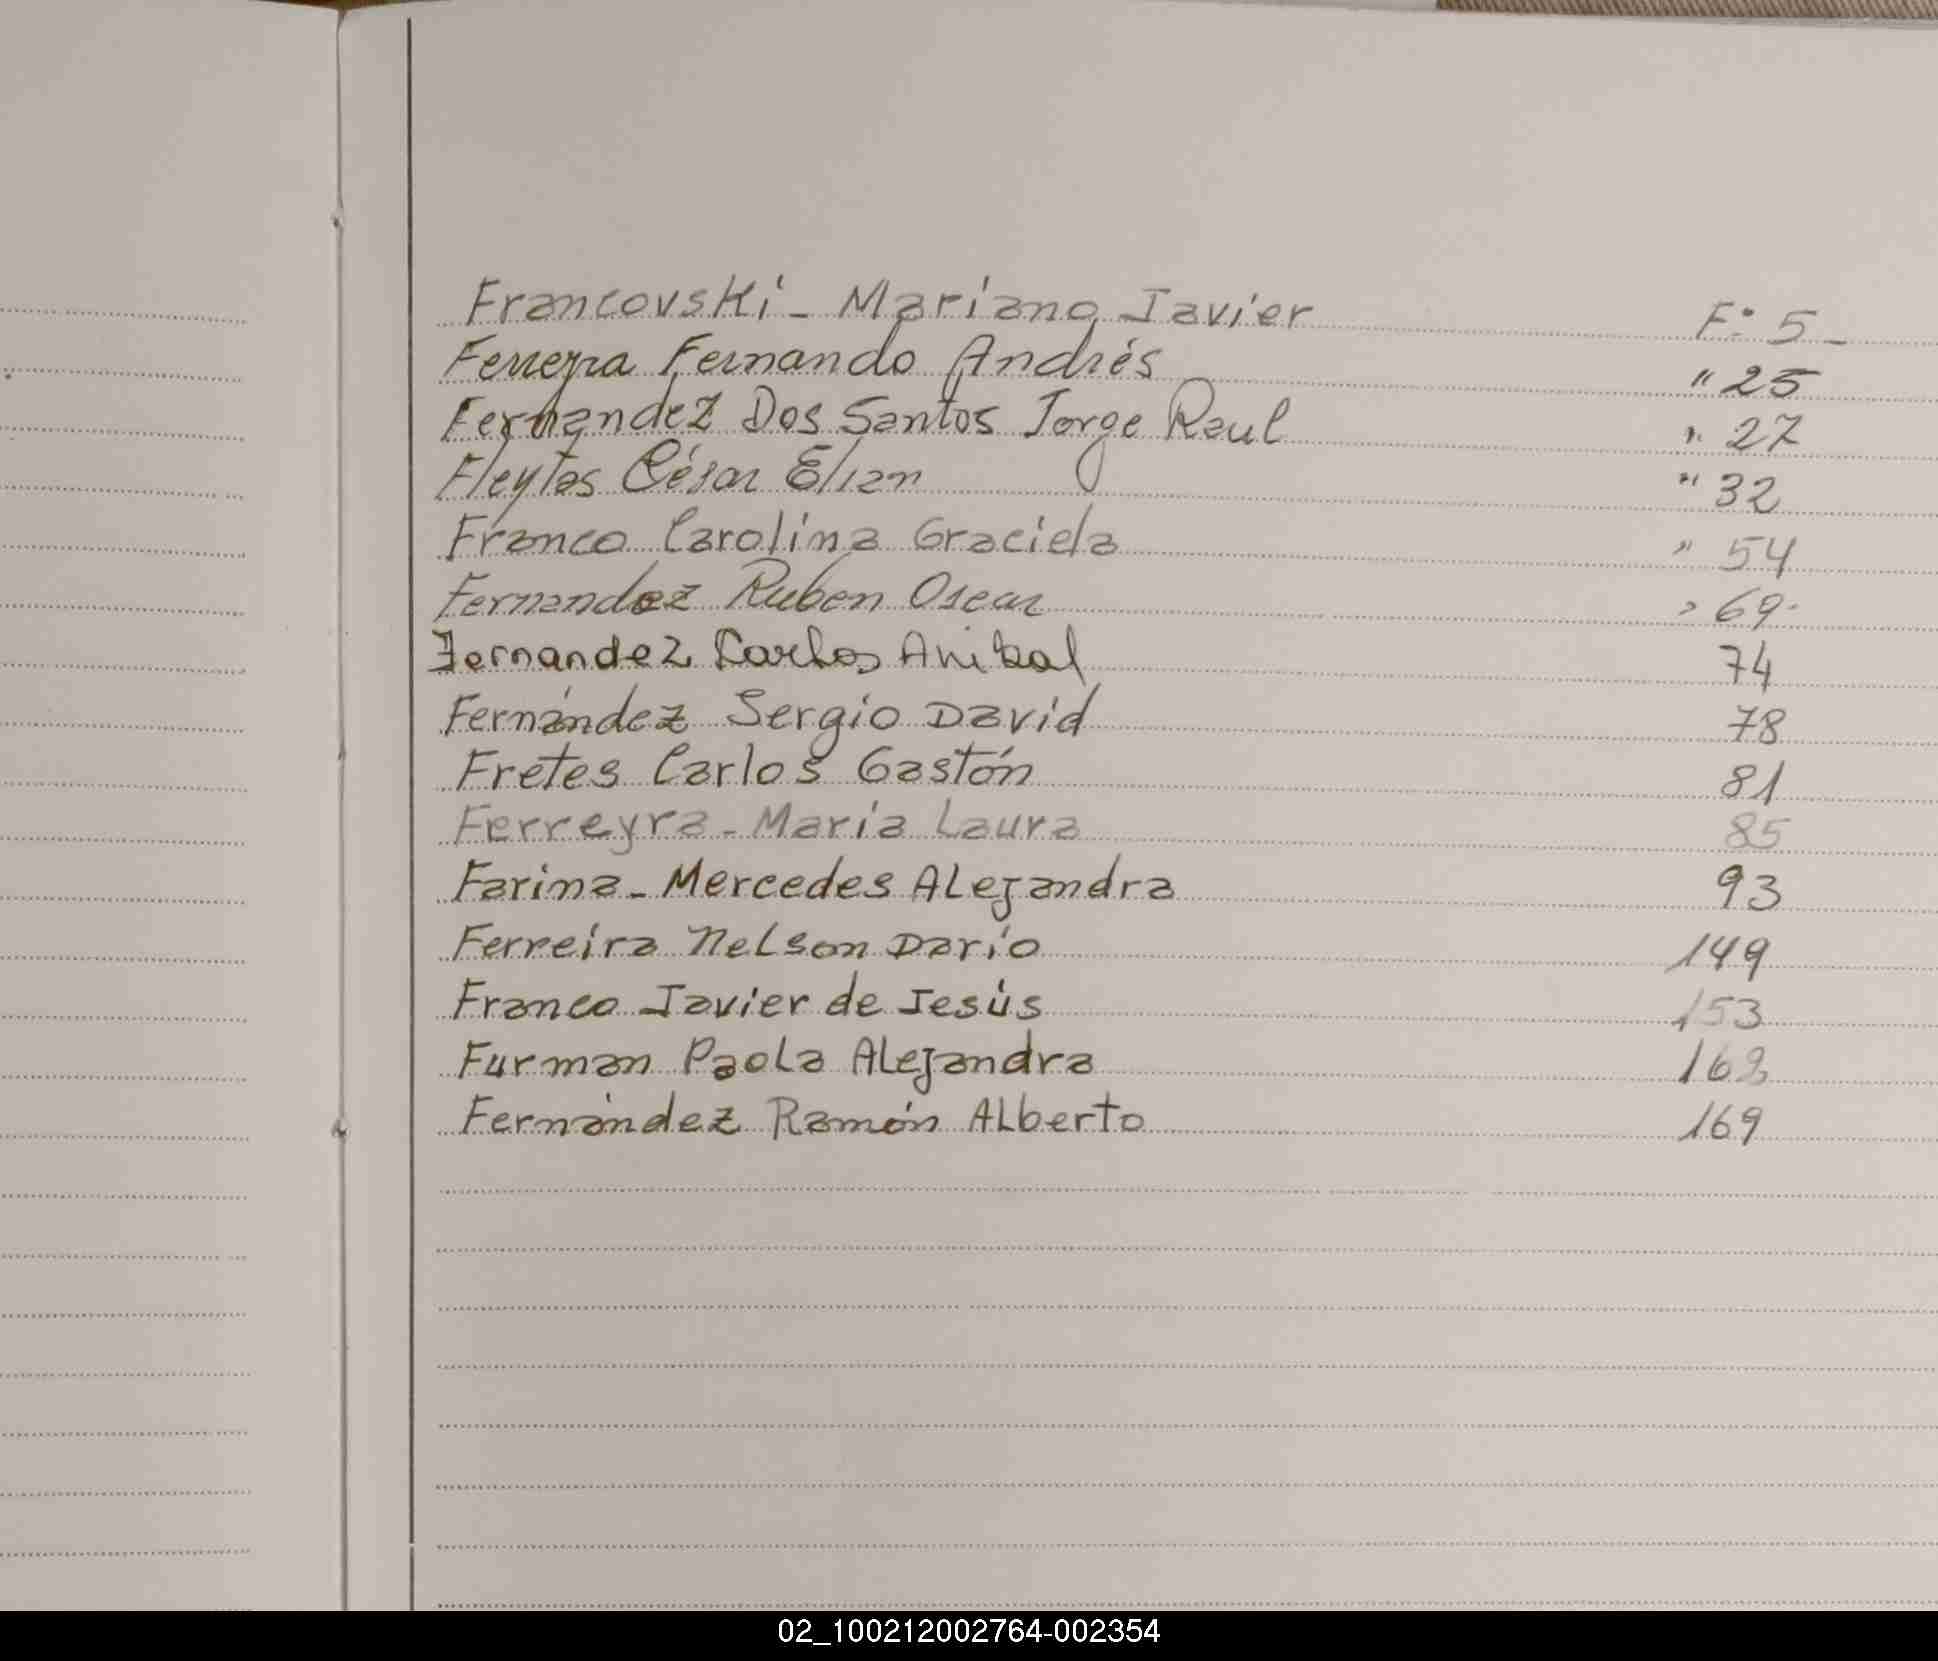 Francovski - Mariano Javier F: 5 -
Ferreyra Fernando Andrés " 25
Fernandez Dos Santos Jorge Raul " 27
Fleytas César Elian " 32
Franco Carolina Graciela " 54
Fernandez Ruben Oscar " 69-
Fernandez Carlos Anibal 74
Fernández Sergio David 78
Fretes Carlos Gastón 81
Ferreyra - María Laura 85
Farina - Mercedes Alejandra 93
Ferreira Nelson Darío 149
Franco Javier de Jesús 153
Furman Paola Alejandra
Fernández Ramón Alberto 169
02_100212002764-002354